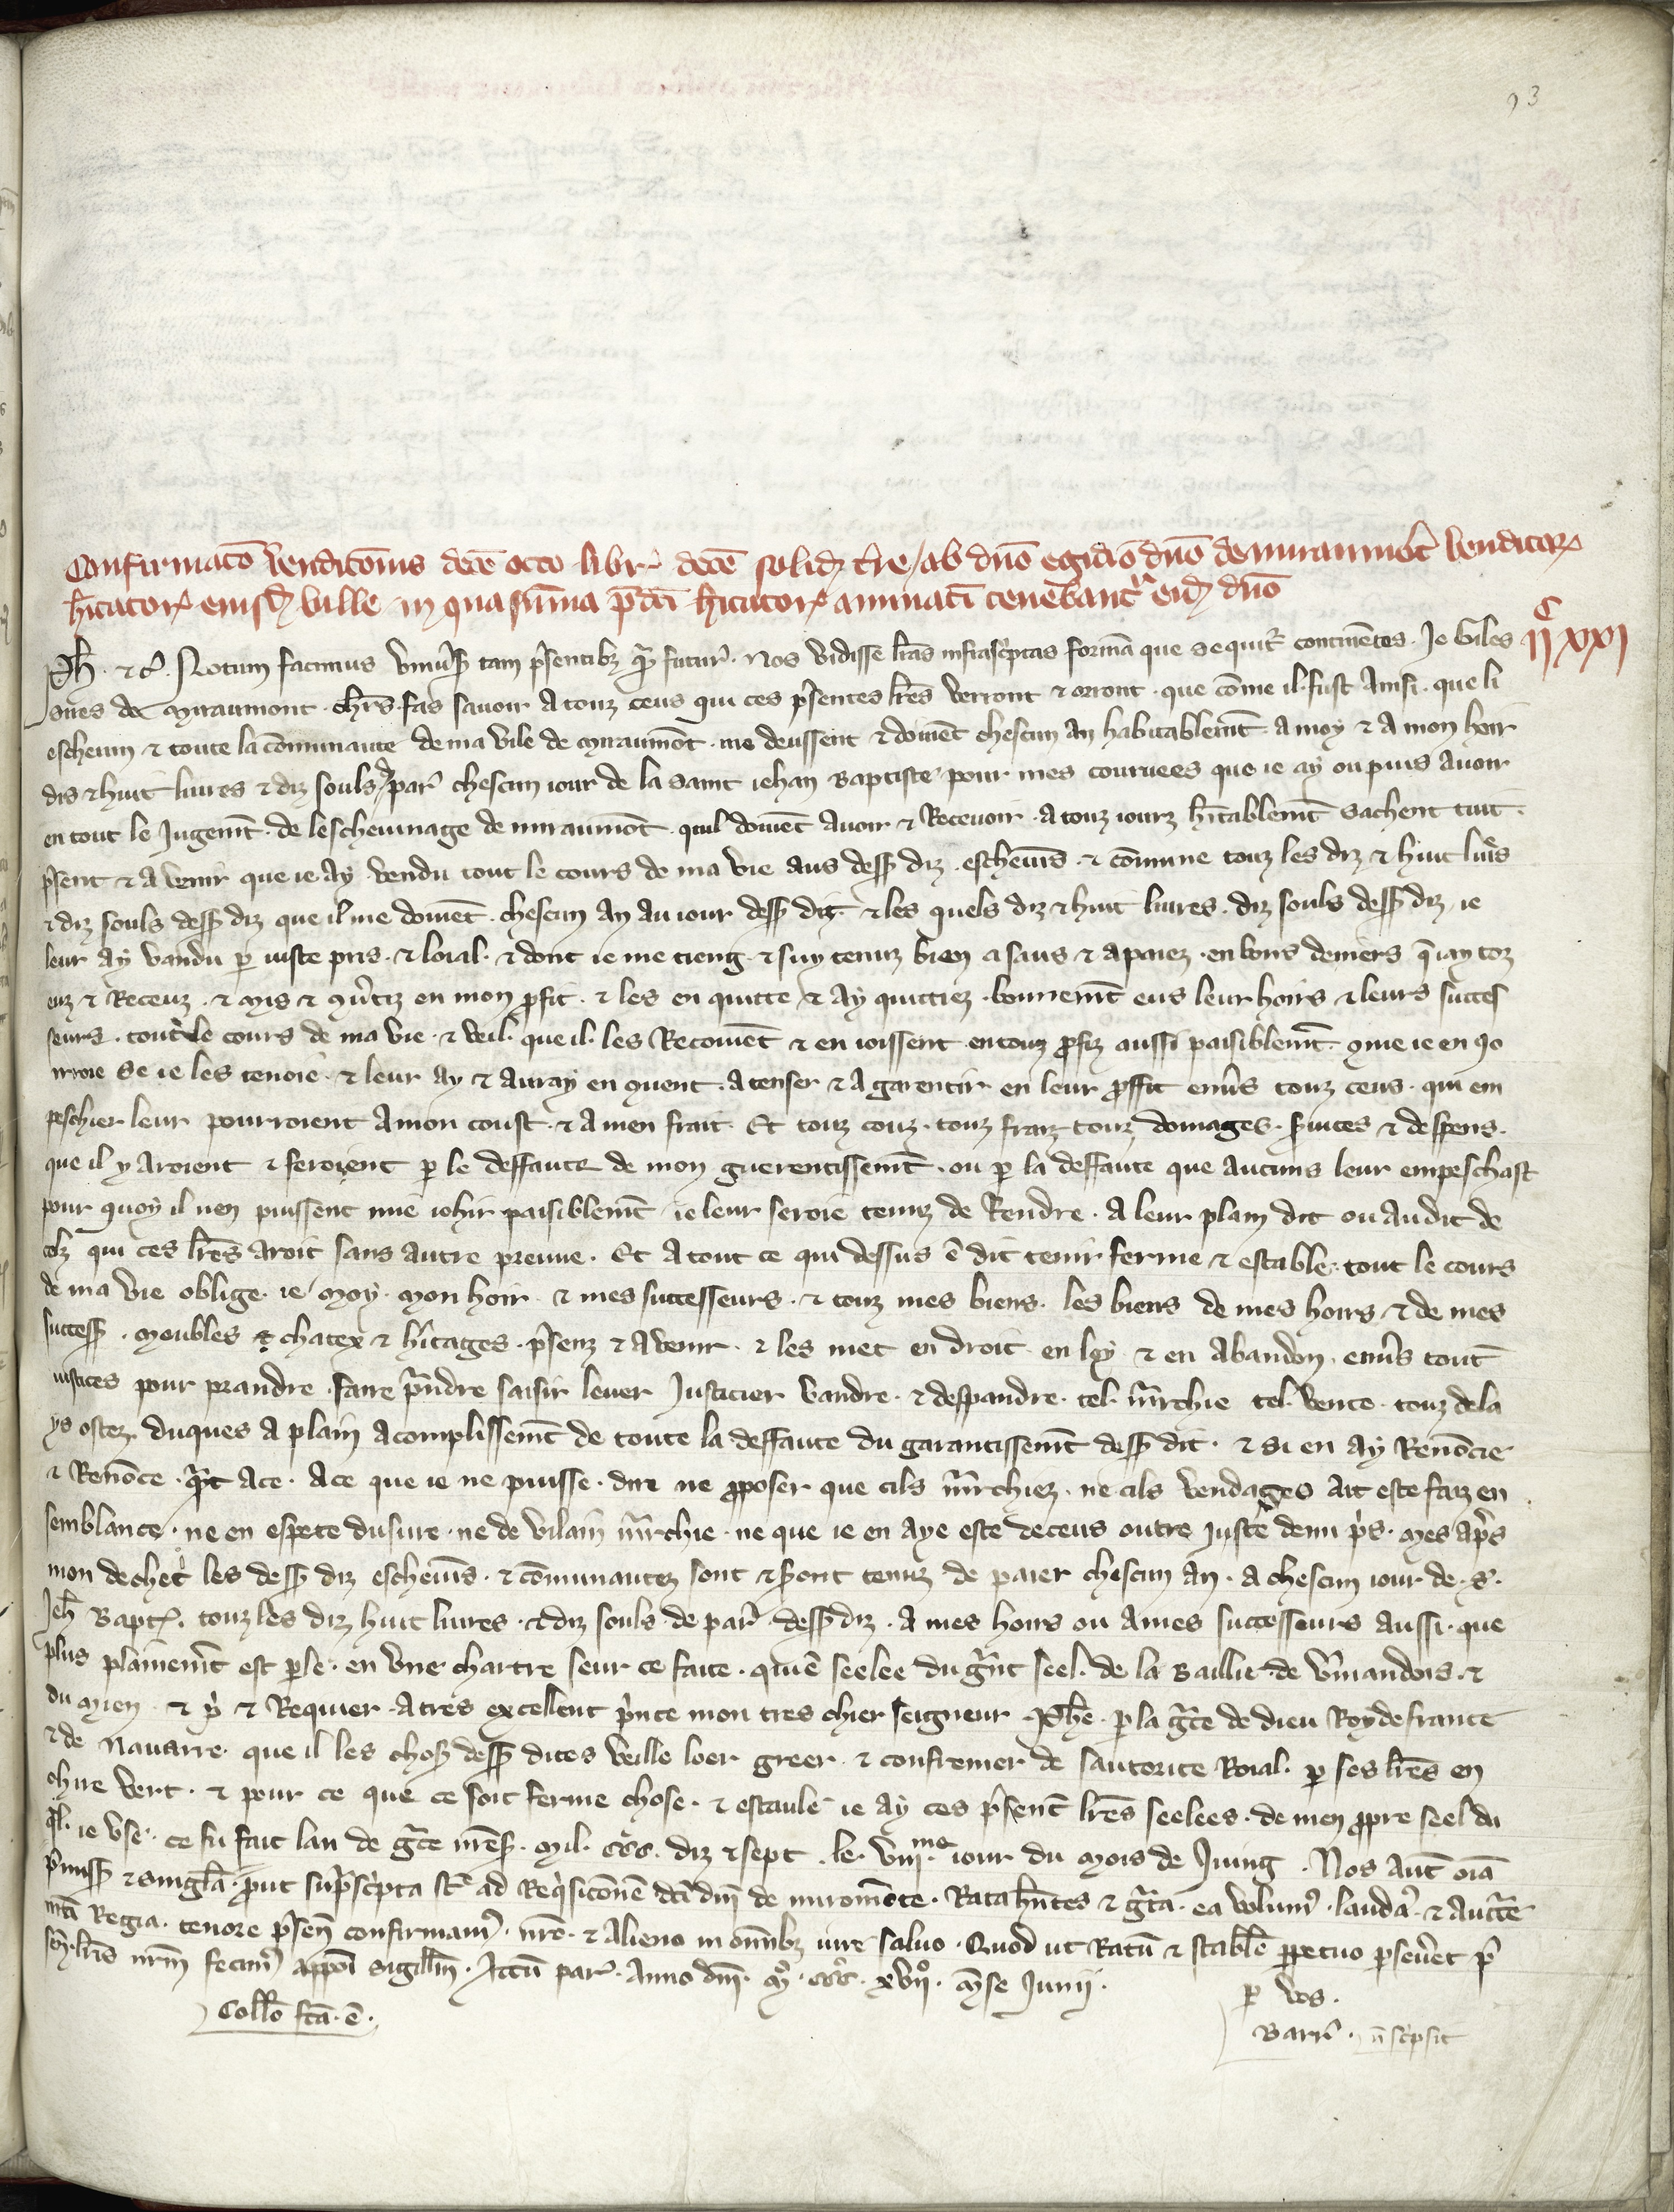 93
Confirmatō vendicōnis decē octo libr̄ decē solidꝝ t͛re / ab dn̄o egidio dn̄o de miraumōt venditorꝝ
h̄itatorꝝ eiusdꝫ ville in qua sūma p̄dcī h̄itatorꝝ annuatī tenebant͛ eidꝫ dn̄o
.ijᶜ xxj
Ph̄. ⁊c̄. Notum facimus vniu͛sꝭ tam p̄sentibꝫ q̄ꝫ futur̄. Nos vidisse lr̄as infrasc͛ptas formā que sequit͛ continētes. Je Giles
sires de Miraumont. chr̄s. fas sauoir a touz ceus qui ces p̄sentes lr̄es verront ⁊ orront. que cōme il fust Ainsi. que li
escheuin ⁊ toute la cōmunaute de ma vile de Miraumōt. me deussent ⁊ doiuēt chescun an habitablemt̄ a moy ⁊ a mon hoir
dis ⁊ huit liures ⁊ diz souls par̄ chescun iour de la saint iehan Baptiste pour mes couruees que ie ay ou puis auoir
en tout le Jugemt̄. de lescheuinage de miraumōt. quil doiuēt auoir ⁊ Receuoir. a touz iourz h̄itablemt̄ Sachent tuit.
p̄sent ⁊ a venir que ie ay vendu tout le cours de ma vie aus dessꝭ diz. escheuīs. ⁊ cōmune touz les diz ⁊ huit liur̄s
⁊ diz souls dessꝭ diz que il me doiuēt. chescun an au iour dessꝭ dit. ⁊ les quels diz ⁊ huit liures. diz souls dessꝭ diz ie
leur ay vandu ꝑ iuste pris. ⁊ loial. ⁊ dont ie me tieng ⁊ suy tenuz bien a saus ⁊ apaiez. en bons deniers q̄ iay toz
euz ⁊ Receuz. ⁊ mis ⁊ ꝯu͛tiz en mon ꝓfit. ⁊ les en quitte ⁊ ay quittiez. bonnemt̄ eus leur hoirs ⁊ leurs succes
seurs. tout le cours de ma vie. ⁊ veil. que il. les Recoiuēt ⁊ en ioissent en touz ꝓfiz aussi paisiblemt̄. ꝯme ie en io
irroie se ie les tenoie. ⁊ leur ay ⁊ auray en ꝯuent. a tenser ⁊ a garentir en leur ꝓffit enu͛s touz ceus. qui em
peschier leur pourroient a mon coust. ⁊ a men frait. Et touz couz. touz fraiz touz domages. s͛uices ⁊ despens.
que il y aroient ⁊ feroient ꝑ le deffaute de mon guerentissemt̄. ou ꝑ la deffaute que aucuns leur empeschast
pour quoy il nen puissent mie iohir paisiblemt̄ ie leur seroie tenuz de Rendre. a leur plain dit ou au dit de
celz qui ces lr̄es aroit sans autre preuue. Et a tout ce qui dessus ē dit tenir ferme ⁊ estable. tout le cours
de ma vie oblige. ie Moy. Mon hoir. ⁊ mes successeurs. ⁊ touz mes biens. les biens de mes hoirs ⁊ de mes
successꝭ. Meubles ⁊ chatex ⁊ h̄itages. p̄senz ⁊ a venir. ⁊ les met en droit. en loy ⁊ en Abandon. enu͛s tout
iustices pour prandre. faire p̄ndre saisir leuer Justicier vandre. ⁊ despandre. tel. m̄rchie tel. vente. touz dela
ys ostez. duques a plain acomplissemt̄ de toute la deffaute du garantissemt̄ dessꝭ dit. ⁊ si en ay Renōcie
⁊ Renōce. q̄nt a ce. A ce que ie ne puisse. dire ne ꝓposer que cils m̄rchiez. ne cils vendages ait este faiz en
semblance. ne en espece dusure. ne de vilain m̄rchie. ne que ie en aye este deceus outre iuste demi p͛s. Mes ap͛s
mon dechet les dessꝭ diz escheuīs. ⁊ cōmunautez sont ⁊ s͛ont tenuz de paier chescun an. a chescun iour de. S.
Jeh̄ Bapt̄. touz les diz huit liures. ⁊ diz souls de par̄ dessꝭ diz. a mes hoirs ou a mes successeurs aussi. que
plus plainemt̄ est ꝑle. en vne chartre seur ce faite. qui ē seelee du ḡnt seel. de la Baillie de v͛mandois. ⁊
du Mien. ⁊ p͛ ⁊ Requier. a tres excellent p͛nce mon tres chier seigneur Ph̄e. ꝑ la gr̄ce de dieu Roy de france
⁊ de Nauarre. que il les chosꝭ dessꝭ dites veille loer greer ⁊ confremer de sautorite Roial. ꝑ ses lr̄es en
cire vert. ⁊ pour ce que ce soit ferme chose. ⁊ estaule ie ay ces p̄sent̄ lr̄es seelees. de men ꝓpre seel du
ql̄. ie vse. ce fu fait lan de gr̄ce nr̄e sꝭ. Mil. ccc. diz ⁊ sept. le. viijᵐᵉ iour du Mois de Juing. Nos aut̄ oīa
p̄missꝭ ⁊ singl̄a. prout sup̄sc͛pta st̄ ad Req͛sicōnē dcī dn̄i de miromōte. Rata hn̄tes ⁊ gr̄ta. ea volum͛. laudam͛. ⁊ auct̄e
nr̄a Regia. tenore p̄sen̄ confirmam͛. nr̄o. ⁊ alieno in om̄ibꝫ iure saluo. Quod ut Ratū ⁊ stabl̄e ꝑpetuo ꝑseu͛et p͛
sen̄. lr̄is nr̄m fecim͛ apponi sigillm̄. Actū par̄. Anno dn̄i. mº. cccº. xvijº. m̄se Junij.
ꝑ vos.
Coll̄o fcā. ē.
Barr̄. n̄ sc͛psit